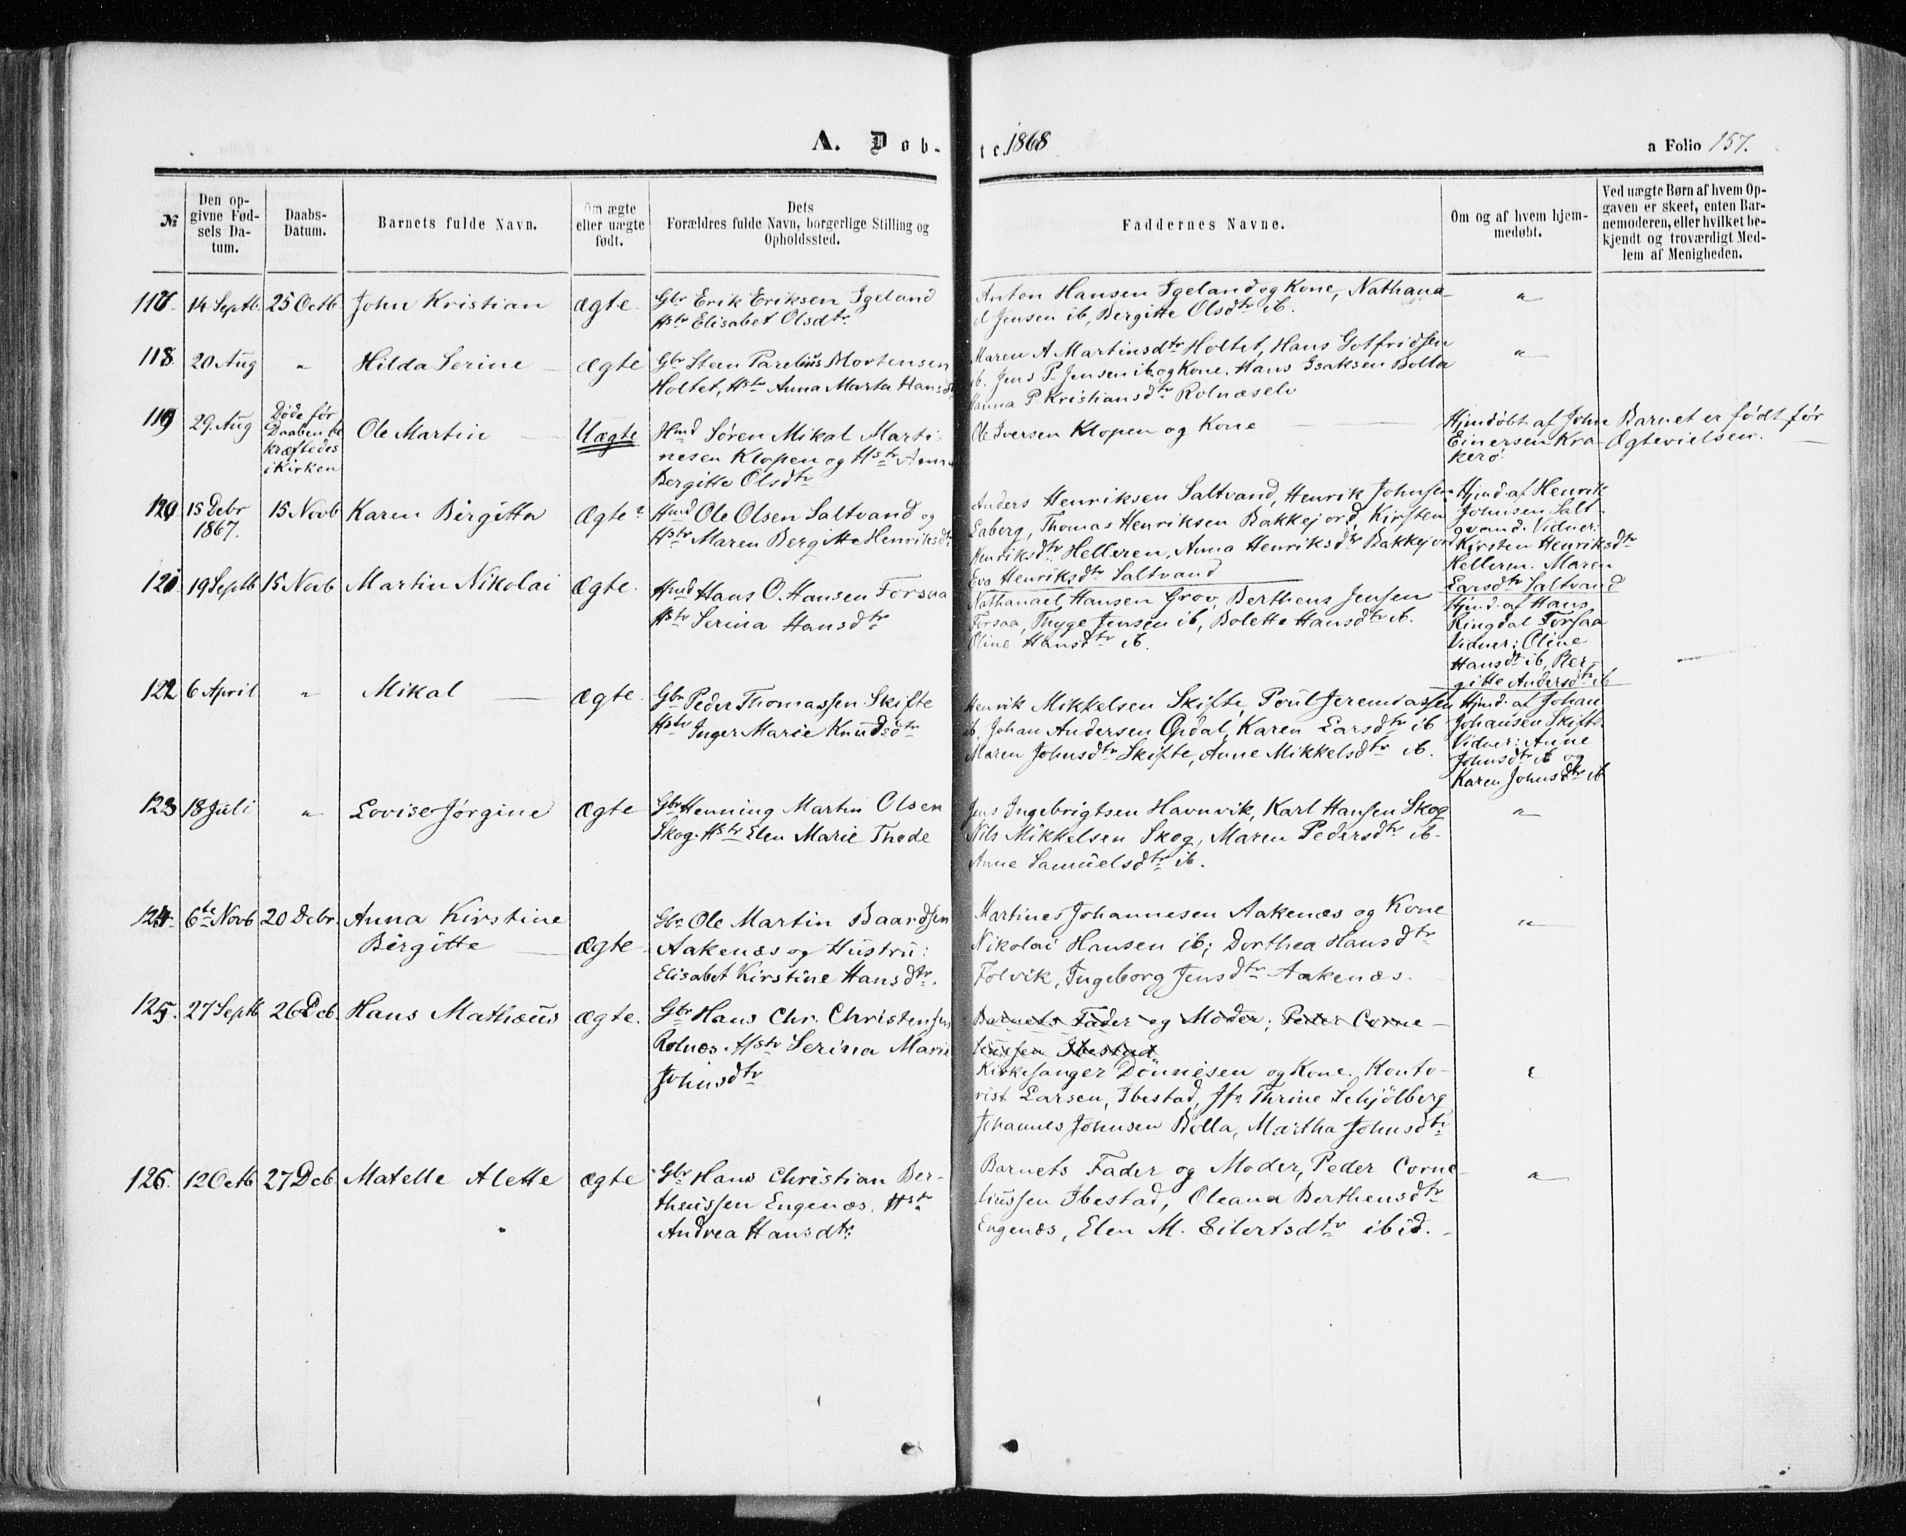 A. Døb-
te. 1868
a Folio 157.
№
Den op-
givne Fød-
sels Da-
tum.
Daabs-
Datum.
Barnets fulde Navn.
Om ægte
eller uægte
født.
Dets
Forældres fulde Navn, borgerlige Stilling og
Opholdssted.
Faddernes Navne.
Om og af hvem hjem-
medøbt.
Ved uægte Børn af hvem Op-
gaven er skeet, enten Bar-
nemoderen, eller hvilket be-
kjendt og troværdigt Med-
lem af Menigheden.
117 14 Septb. 25 Octb. John Kristian ægte.
Gbr Erik Eriksen Igeland
Hstr Elisabet Olsdtr
Anton Hansen Igeland og Kone, Nathana-
el Jensen ib, Bergitte Olsdtr ib. "
118 20 Aug " Hilda Serine ægte
Gbr Steen Parelius Mortensen
Holtet, Hstr Anna Marta Hansd
Maren A Martinsdtr Holtet, Hans Gotfridsen
ib. Jens P. Jensen ib og Kone. Hans Isaksen Bolla
Hanna P. Kristiansdtr Rolnæseli "
119 29. Aug
Døde før
Daaben be
kræftedes
i Kirken
Ole Martin Uægte
Hmd Søren Mikal Marti-
nesen Klopen og Hstr Anna
Bergitte Olsdtr
Ole Iversen Klopen og Kone
Hjmdøbt af John
Einersen Kra-
kerø.
Barnet er født før
Ægtevielsen.
120 15 Debr
1867.
15 Novb Karen Birgitta Ægte
Hmd Ole Olsen Saltvand og
Hstr Maren Bergitte Henriksdtr
Anders Henriksen Saltvand, Henrik Johnsen
Laberg, Thomas Henriksen Bakkejord, Kirsten
Henriksdtr Helleren, Anna Henriksdtr Bakkejord
Eva Henriksdtr Saltvand
Hjmd. af Henrik
Johnsen Salt-
vand. Vidner:
Kirsten Henriksdtr
Hellerm. Maren
Larsdtr Saltvand
121 19 Septb 15 Novb Martin Nikolai ægte.
Hmd Hans O. Hansen Forsaa
Hstr Serina Hansdtr
Nathanael Hansen Grov, Bertheus Jensen
Forsaa, Thyge Jensen ib, Bolette Hansdtr ib.
Oline Hansdtr ib.
Hjmd. af Hans
Ringdal Forsaa
Vidner: Oline
Hansdt ib, Ber-
gitte Andersdtr ib
122 6 April " Mikal ægte.
Gbr Peder Thomassen Skifte
Hstr Inger Marie Knudsdtr
Henrik Mikkelsen Skifte, Poul Jeremiassen
ib, Johan Andersen Opdal, Karen Larsdtr ib
Maren Johnsdtr Skifte, Anne Mikkelsdtr ib.
Hjmd. af Johan
Johansen Skifte
Vidner: Anne
Johnsdtr ib og
Karen Johnsdtr ib
123 18 Juli " Lovise Jørgine ægte
Gbr Henning Martin Olsen
Skog. Hstr Elen Marie Thode
Jens Ingebrigtsen Havnvik, Karl Hansen Skog
Nils Mikkelsen Skog, Maren Pedersdtr ib.
Anne Samuelsdtr ib. "
124. 6te Novb 20 Debr. Anna Kirstine
Birgitte ægte
Gbr Ole Martin Baardsen
Aakenæs og Hustru:
Elisabet Kirstine Hansdtr.
Martines Johannesen Aakenæs og Kone
Nikolai Hansen ib; Dorthea Hansdtr
Tolvik, Ingeborg Jensdtr Aakenæs. "
125. 27 Septb. 26 Deb. Hans Mathæus ægte.
Gbr Hans Chr. Christensen
Rolnæs. Hstr Serina Marie
Johnsdtr
Barnets Fader og Moder; Peder Corne-
liussen Ibestad
Kirkesanger Dönnesen og Kone. Konto-
rist Larsen, Ibestad, Jfr Thrine Schjölberg
Johannes Johnsen Bolla, Martha Johnsdtr
126. 12 Octb 27 Deb. Matelle Alette ægte
Gbr Hans Christian Ber-
theussen Engenæs. Hstr
Andrea Hansdtr
Barnets Fader og Moder, Peder Corne-
liussen Ibestad, Oleana Bertheusdtr
Engenæs, Elen M. Eilertsdtr ibid. "